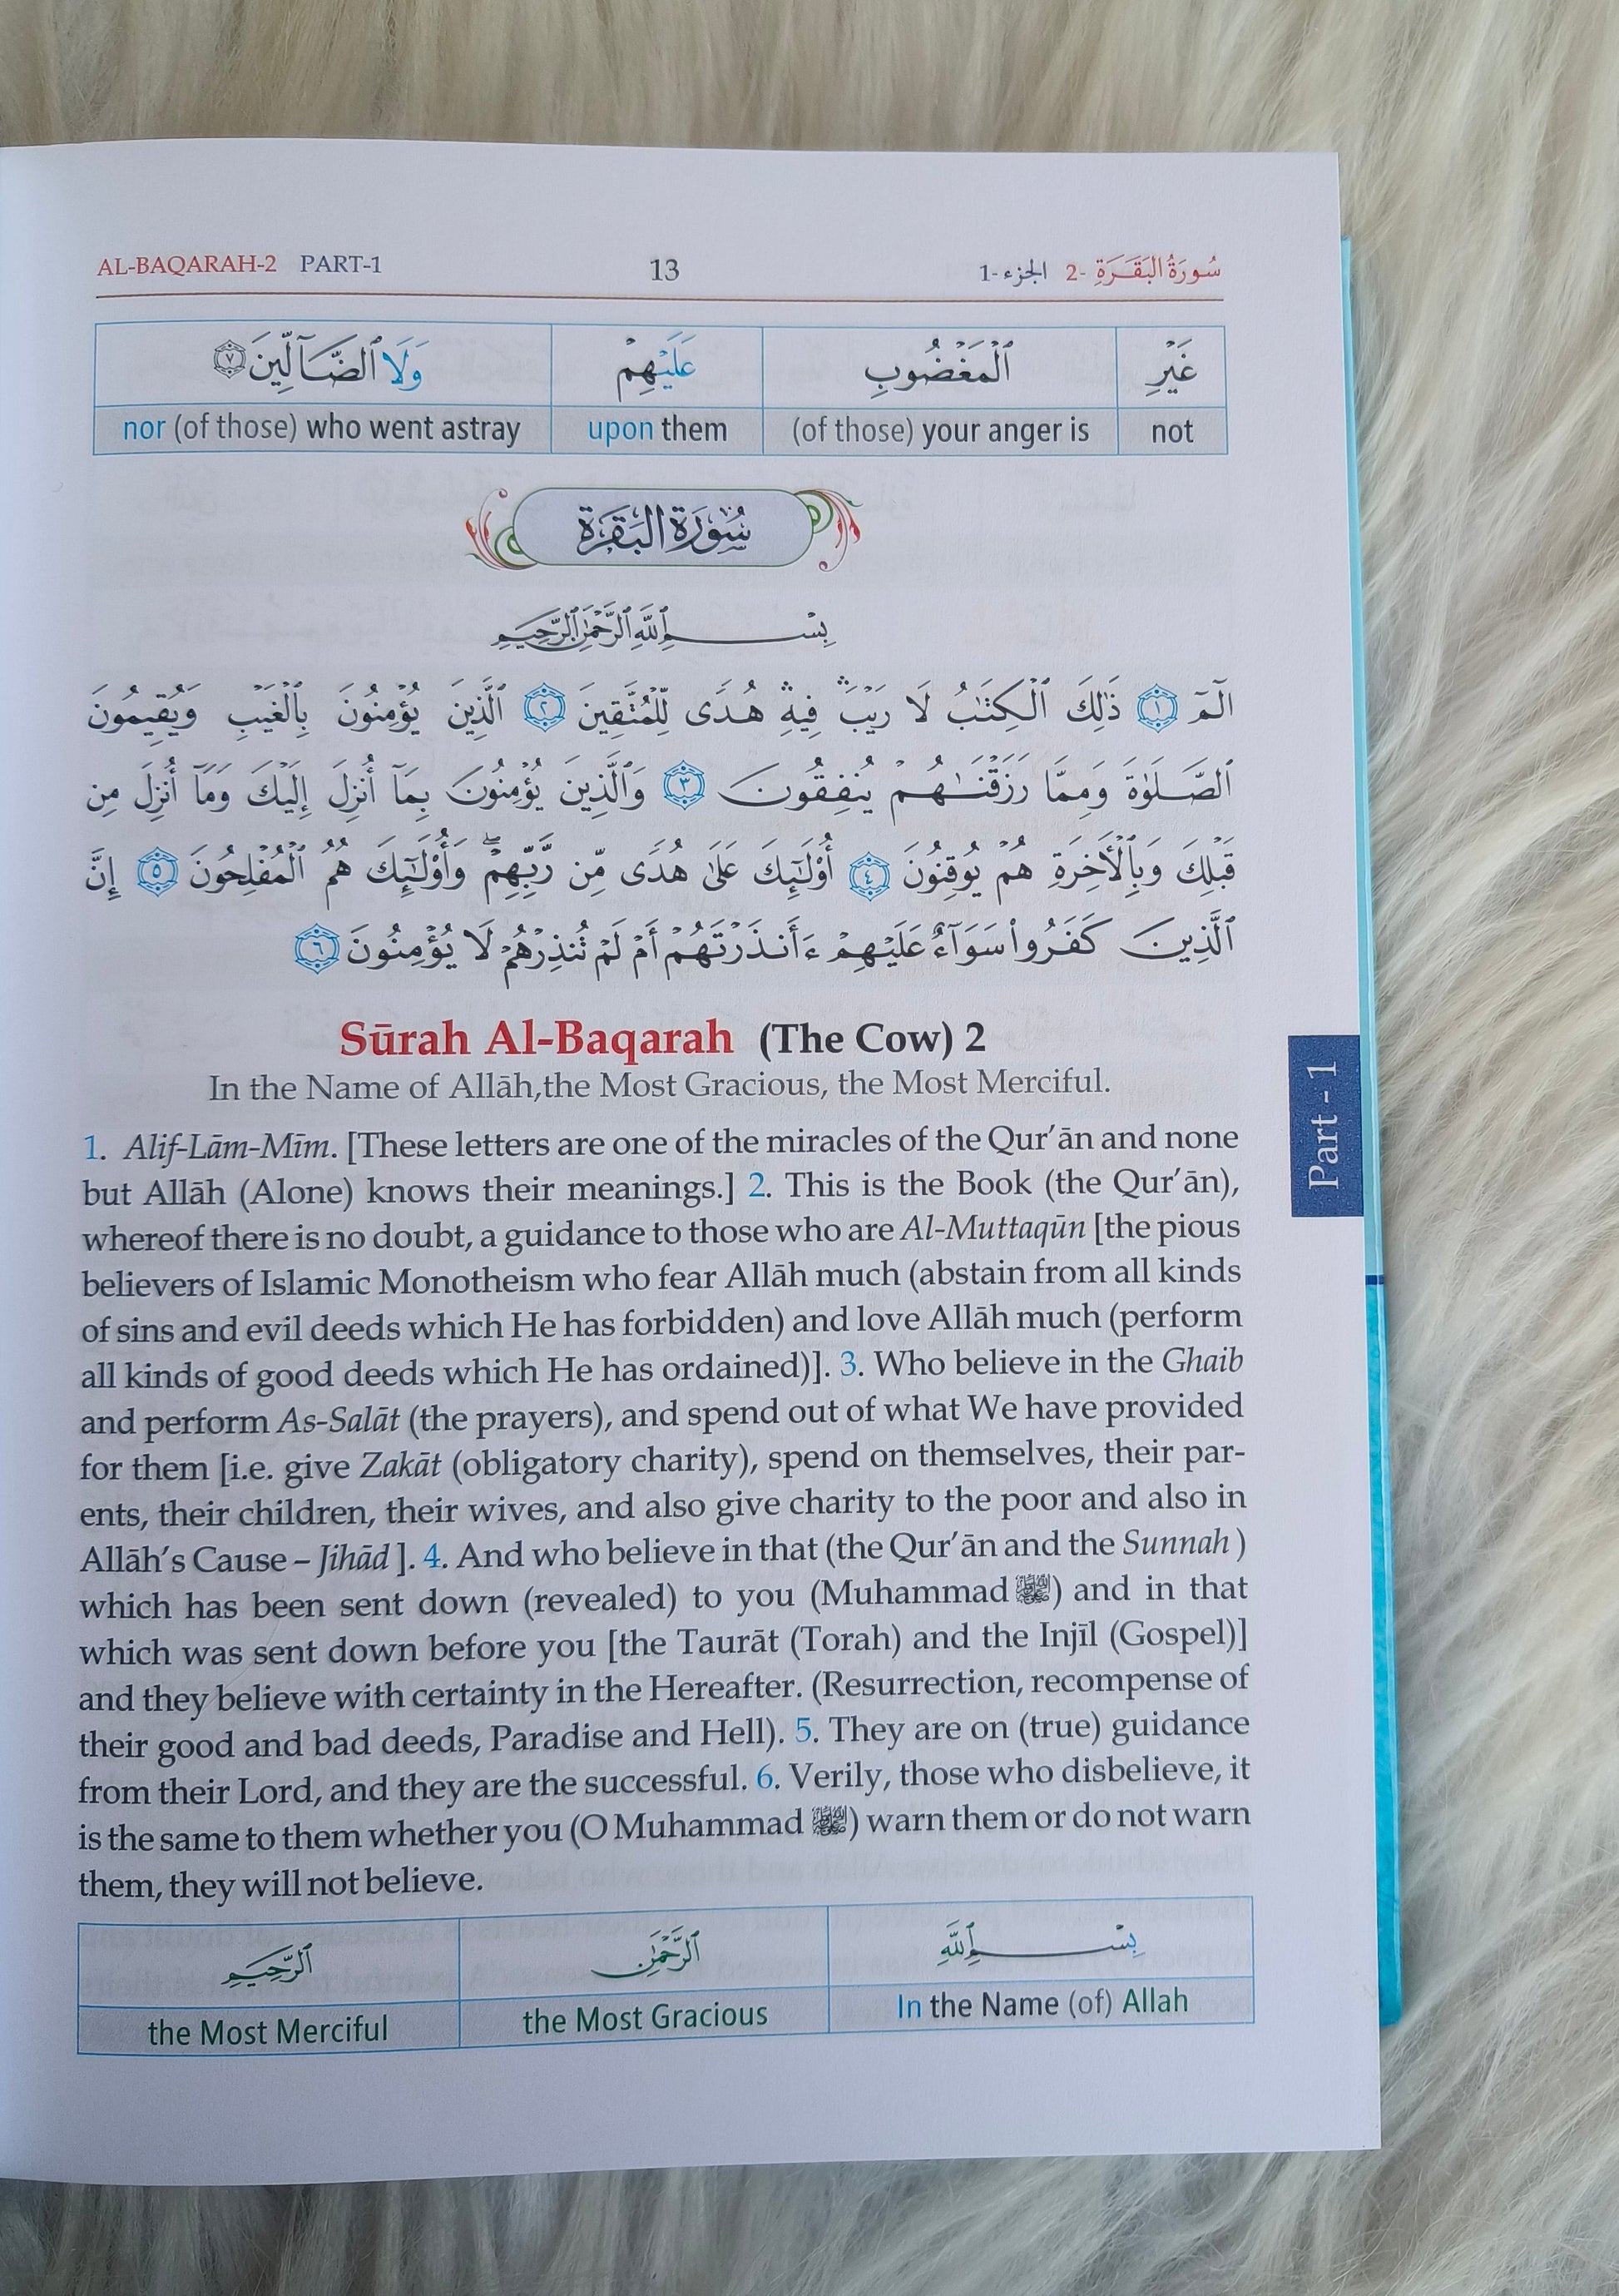 AL-BAQARAH-2 PART-1 13 سُورَةُ البَقَرَةِ -2 الجزء -1
غَيْرِ ٱلْمَغْضُوبِ عَلَيْهِمْ وَلَا ٱلضَّآلِّينَ ٧
not (of those) your anger is upon them nor (of those) who went astray
سُورَة البَقَرَة
بِسْمِ ٱللَّهِ ٱلرَّحْمَٰنِ ٱلرَّحِيمِ
الٓمٓ ١ ذَٰلِكَ ٱلْكِتَٰبُ لَا رَيْبَ ۛ فِيهِ ۛ هُدًى لِّلْمُتَّقِينَ ٢ ٱلَّذِينَ يُؤْمِنُونَ بِٱلْغَيْبِ وَيُقِيمُونَ
ٱلصَّلَوٰةَ وَمِمَّا رَزَقْنَٰهُمْ يُنفِقُونَ ٣ وَٱلَّذِينَ يُؤْمِنُونَ بِمَآ أُنزِلَ إِلَيْكَ وَمَآ أُنزِلَ مِن
قَبْلِكَ وَبِٱلْأَخِرَةِ هُمْ يُوقِنُونَ ٤ أُو۟لَٰٓئِكَ عَلَىٰ هُدًى مِّن رَّبِّهِمْ ۖ وَأُو۟لَٰٓئِكَ هُمُ ٱلْمُفْلِحُونَ ٥ إِنَّ
ٱلَّذِينَ كَفَرُوا۟ سَوَآءٌ عَلَيْهِمْ ءَأَنذَرْتَهُمْ أَمْ لَمْ تُنذِرْهُمْ لَا يُؤْمِنُونَ ٦
Sūrah Al-Baqarah (The Cow) 2
In the Name of Allāh,the Most Gracious, the Most Merciful.
1. Alif-Lām-Mīm. [These letters are one of the miracles of the Qur'ān and none
but Allāh (Alone) knows their meanings.] 2. This is the Book (the Qur'ān),
whereof there is no doubt, a guidance to those who are Al-Muttaqūn [the pious
believers of Islamic Monotheism who fear Allāh much (abstain from all kinds
of sins and evil deeds which He has forbidden) and love Allāh much (perform
all kinds of good deeds which He has ordained)]. 3. Who believe in the Ghaib
and perform As-Salāt (the prayers), and spend out of what We have provided
for them [i.e. give Zakāt (obligatory charity), spend on themselves, their par-
ents, their children, their wives, and also give charity to the poor and also in
Allāh's Cause – Jihād ]. 4. And who believe in that (the Qur'ān and the Sunnah )
which has been sent down (revealed) to you (Muhammad ﷺ) and in that
which was sent down before you [the Taurāt (Torah) and the Injīl (Gospel)]
and they believe with certainty in the Hereafter. (Resurrection, recompense of
their good and bad deeds, Paradise and Hell). 5. They are on (true) guidance
from their Lord, and they are the successful. 6. Verily, those who disbelieve, it
is the same to them whether you (O Muhammad ﷺ) warn them or do not warn
them, they will not believe.
بِسْمِ ٱللَّهِ ٱلرَّحْمَٰنِ ٱلرَّحِيمِ
In the Name (of) Allah the Most Gracious the Most Merciful
Part - 1